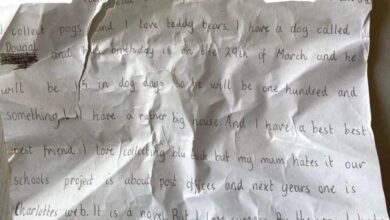 collect pogs and I love teddy bears. I have a dog called
Dougal and his birthday is on the 29th of March and he
will be 15 in dog days so he will be one hundred and
something. I have a rather big house. And I have a best best
best friend. I love collecting blu tack but my mum hates it our
schools project is about post offices and next years one is
Charlottes web. It is a novel. But I am